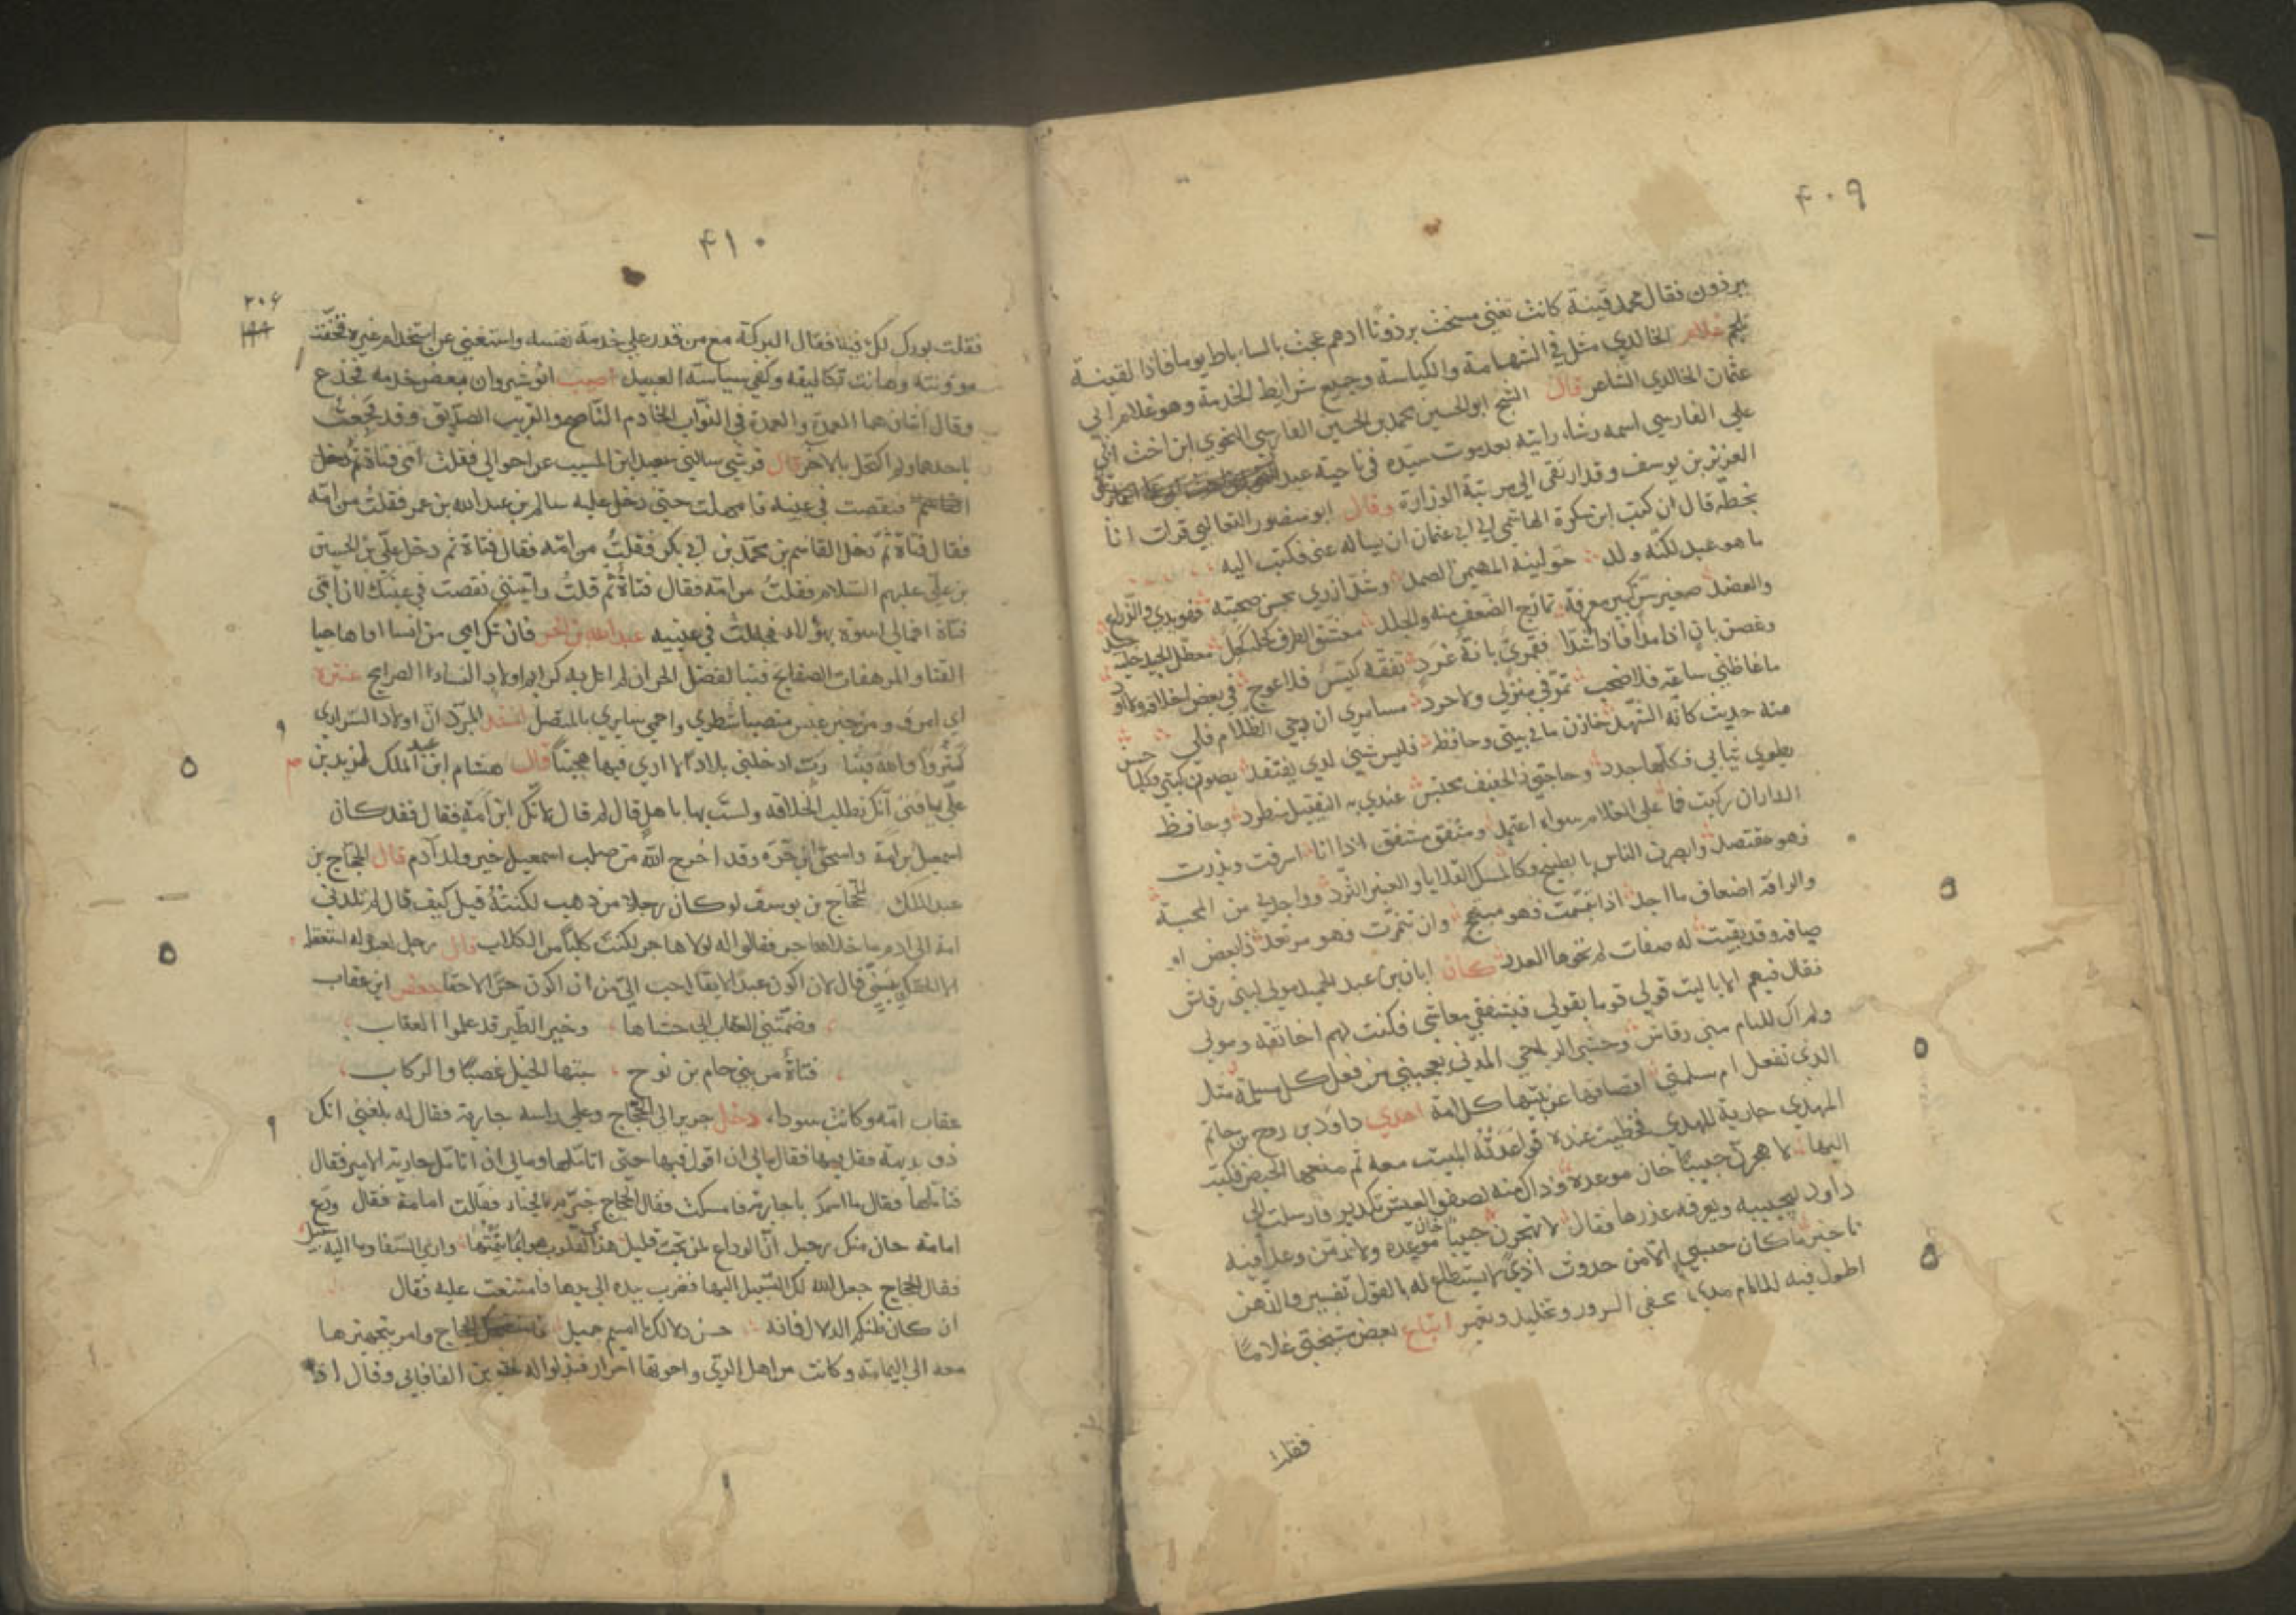 ٤٠٩
ببرذون فقال محمد قينة كانت تغني مسخت برذونا ادهم عجت بالساباط يوما فاذا لقينة
تلجم غلام الخالدي مثل في الشهامة والكياسة وجميع شرايط الخدمة وهو غلام ابي
عثمان الخالدي الشاعر قال الشيخ ابو الحسين محمد بن الحسين الفارسي النحوي ابن اخت ابي
علي الفارسي اسمه رشاء رايته بعد موت سيده في ناحية عبد
العزيز بن يوسف وقد ارتقى الى مرتبة الوزارة وقال ابو منصور الثعالبي قرات انا
بخطه قال ان كتب ابن سكرة الهاشمي الي ابي عثمان ان يساله عني فكتب اليه
ما هو عبد لكنه ولد خولنيه المهيمن الصمد وشد ازري بحسن صحبته فهو يدي والذراع
والعضد صغير سن كبير معرفة تمازج الضعف منه والجلد معشق الطرف كحله كحل معطل الجيد حليه
وغصن بان اذا بدا فاذا شدا فقمري بانة غرد ثقفه كيسه فلا عوج في بعض اخلاقه ولا اود
ما غاظني ساعة فلا صخب تمر في منزلي ولا حرد مسامري ان دجي الظلام فلي
منه حديث كانه الشهد خازن ما في بيتي وحافظه فليس شيئ لدي يفتقد يصون كتبي فكلها حسن
يطوي ثيابي فكلها جدد وحاجتي فالخفيف محتبس عندي به الثقيل منطرد وحافظ
الدار ان ركبت فما على الغلام سواه اعتمد ومنفق مشفق اذا انا اسرفت وبذرت
فهو مقتصد وابصر الناس بالطبيخ وكالمسك القلايا والعنبر الثرد وواجد بي من المحبة
والرافة اضعاف ما اجد اذا تبسمت فهو مبتهج وان تنمرت فهو مرتعد ذا بعض او
صافه وقد بقيت له صفات لم تحوها العدد كان ابان بن عبد الحميد مولى لبني رقاش
فقال فيهم الا يا ليت قولي قوما بقولي فيتنفقي معاشي فكنت لهم اخا ثقة ومولى
ولم اك للئام بني رقاش
الذي تفعل ام سلمتي اهدي داود بن روح بن حاتم
المهدي جارية للمهدي فحظيت عنده فواعدته المبيت معه ثم منعها الحيض فكتب
اليها لا هجرن حبيبا خان موعده وذاك منه لصفو العيش تكدير فارسلت الى
داود ليجيبه ويعرفه عذرها فقال لا تهجرن حبيبا خان موعده ولا تذمن وعدا فيه
تاخير ما كان حبسي الا من حدوث اذى لا يستطاع له بالقول تفسير
ابتاع بعض شيختي غلاما
فقلت
٤١٠
٢٠٦
فقلت بورك لك فيه فقال البركة مع من قدر على خدمة نفسه واستغنى عن استخدام غيره فخفت
مؤونته وهانت تكاليفه وكفي سياسة العبيد اصيب انوشروان ببعض خدمه فجزع
وقال اثنان هما العمدة والعمدة في النواب الخادم الناصح والقريب الصديق وقد فجعت
باحدهما ولم اكتحل بالاخر قال قرشي سالني سعيد ابن المسيب عن اخوالي فقلت امي فتاة
فنقصت في عينه فامهلت حتى دخل عليه سالم بن عبد الله بن عمر فقلت من امه
فقال فتاة ثم دخل القاسم بن محمد بن ابي بكر فقلت من امه فقال فتاة ثم دخل علي بن الحسين
بن علي عليهم السلام فقلت من امه فقال فتاة ثم قلت رايتني نقصت في عينك لان امي
فتاة افمالي اسوة بهؤلاء فجللت في عينيه عبد الله بن الحر فان تك امي من انسا افاها جيا
القنا والمرهفات الصفايح فتبا لفضل الحر ان لم انل به كرايم اولاد النساء الصرايح عنترة
اني امرؤ من خير عبس منصبا شطري واحمي سايري بالمنصل انشد المبرد ان اولاد السراري
كثروا يا رب فينا رب ادخلني بلادا لا ارى فيها هجينا قال هشام ابن عبد الملك لزيد بن
علي بلغني انك تطلب الخلافة ولست بها باهل قال لم قال لانك ابن امة فقال فقد كان
اسمعيل بن امة واسحق ابن حرة وقد اخرج الله من صلب اسمعيل خير ولد آدم قال الحجاج بن
عبد الملك للحجاج بن يوسف لو كان رجلا من ذهب لكنته قيل كيف قال لم تلدني
امة الى ادم ما خلا هاجر فقالوا له لولا هاجر لكنت كلبا من الكلاب قال رجل لعبد له
قال لان اكون عبدا لابقا احب الي من ان اكون حرا لاحقا جعفر ابن عقاب
وضمتني العقاب الى حشاها وخير الطير قد علموا العقاب
فتاة من بني حام بن نوح سبتها الخيل غصبا والركاب
عقاب امه وكانت سوداء دخل جرير الى الحجاج وعلى راسه جارية فقال له بلغني انك
ذو بديهة فقل فيها فقال مالي ان اقول فيها حتى اتاملها ومالي ان اتامل جارية الامير فقال
فتاملها فقال ما اسمك يا جارية فامسكت فقال الحجاج خبريه يا لخناء فقالت امامة فقال ودع
امامة حان منك رحيل ان الوداع لمن تحب قليل هذي القلوب هوائما تيمتها وارى الشفا وما اليه سبيل
فقال الحجاج جعل الله لك السبيل اليها فضرب بيده الى يدها فامتنعت عليه فقال
ان كان طبكم الدلال فانه حسن دلالك يا اميم جميل الحجاج وامر بتجهيزها
معه الى اليمامة وكانت من اهل الري واخوتها احرار فبذلوا له عشرين الفا فابى وقال اذا